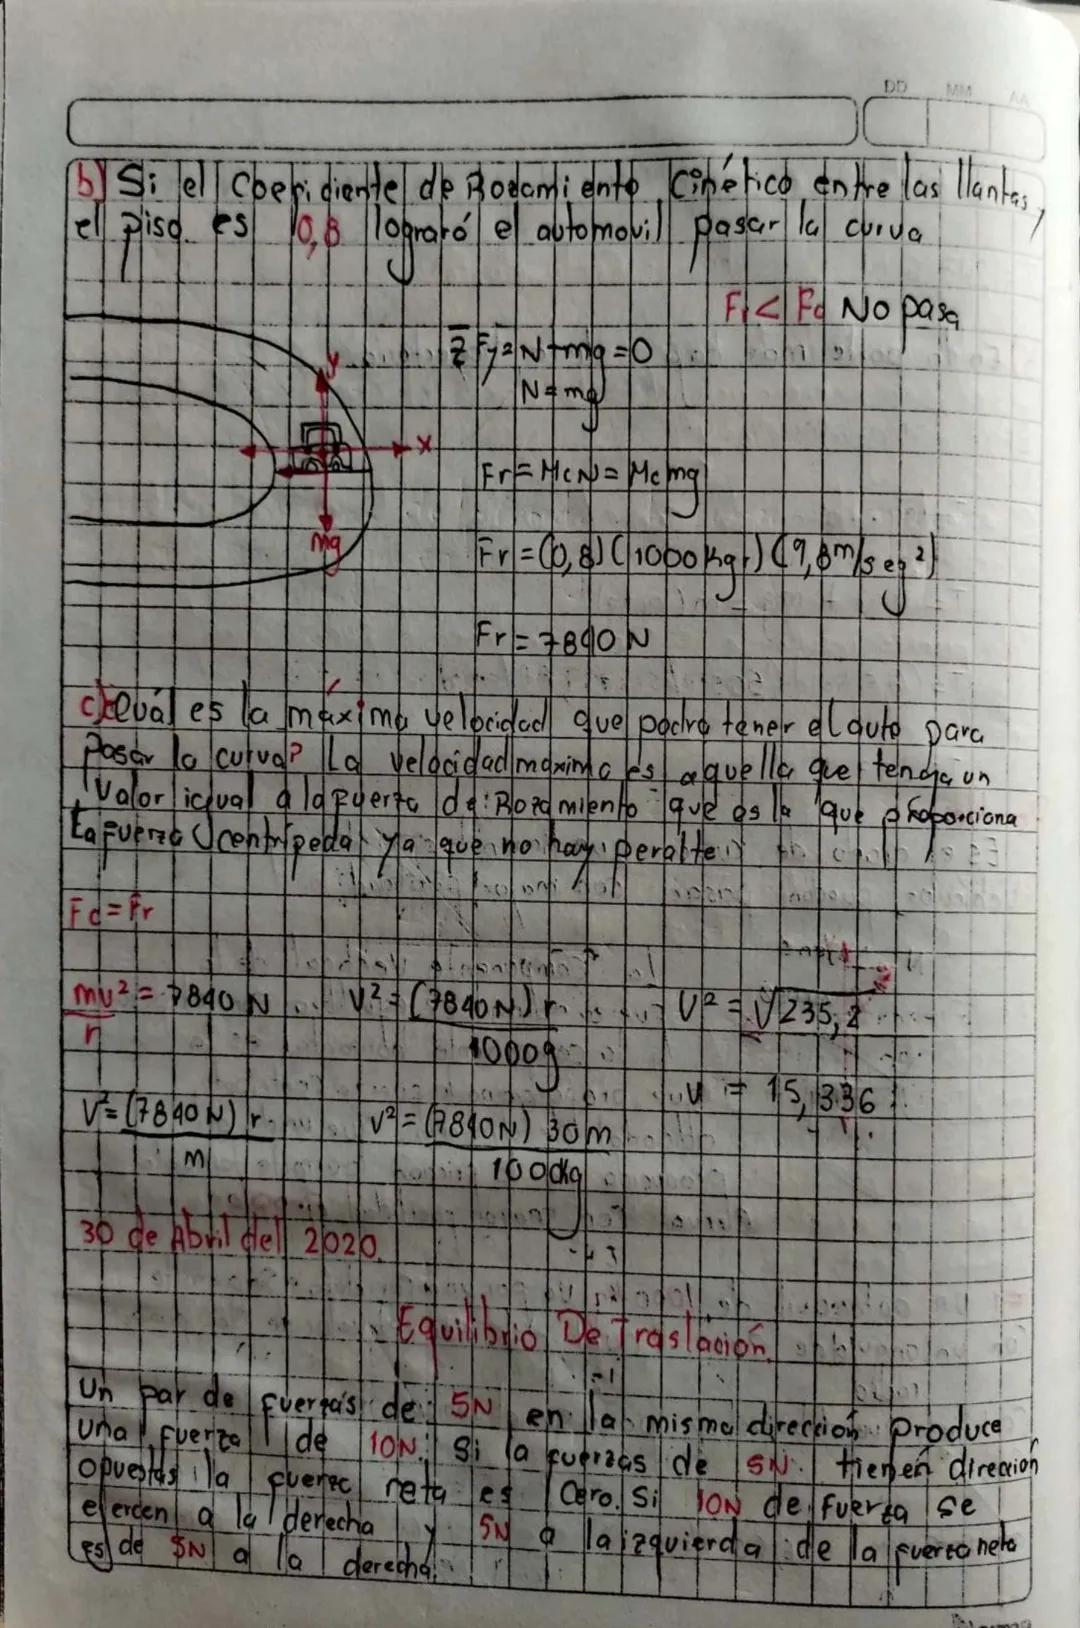 DD MM AA
b) Si el Coefidiente de Rozamiento Cinético entre las llantas y
el piso es 0,8 logrará el automovil pasar la curva
Fr < Fc No pasa
ΣFy = N + mg = 0
N = mg
y
x
mg
Fr = McN = Mcmg
Fr = (0,8) (1000 kgr) (9,8 m/seg²)
Fr = 7840 N
c) Cuál es la máxima velocidad que podra tener el auto para
pasar la curva? La velocidad maxima es aquella que tenga un
Valor igual a la fuerza de Rozamiento que es la que proporciona
La fuerza centripeda ya que no hay peralte
Fc = Fr
mv² = 7840 N V² = (7840 N) r V² = √235,2
r 1000g
V = 15,336
V² = (7840 N) r V² = (7840N) 30m
m 1000kg
30 de Abril del 2020.
Equilibrio De Traslación.
Un par de fuerzas de 5N en la misma dirección produce
una fuerza de 10N. Si la fuerzas de 5N tienen dirección
opuestas la fuerza neta es Cero. Si 10N de fuerza se
ejercen a la derecha y 5N a la izquierda de la fuerza neta
es de 5N a la derecha.